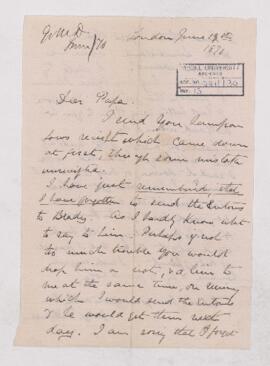 G.M.D.
June/76
London June 19th
1876
McGILL UNIVERSITY
ARCHIVES
ACC. NO.
REF. 13
Dear Papa.
I send you Lampson
Sows receipt which came down
at first, through some mistake
unsigned.
I have just remembered that
I have forgotten to send the
to Bleds. As I hardly know what
to say to him. Perhaps if not
too much trouble you would
drop him a note, & a line to
me at the same time, on receiving
which I would send the
& he would get them next
day. I am sorry that I forgot